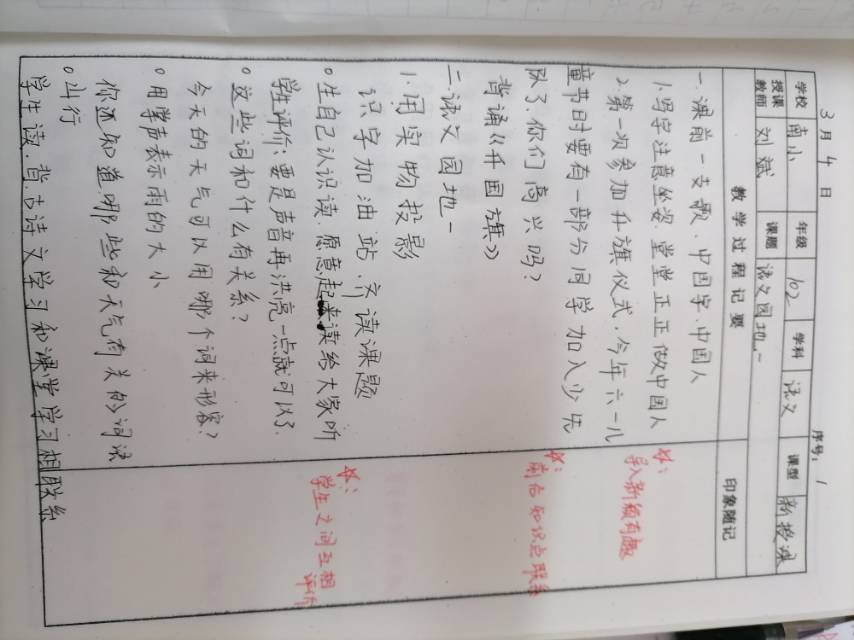 序号: 1
3月4日
学校 南小 年级 102 学科 语文 课型 新授课
授课教师 刘斌 课题 语文园地一
教学过程记要 印象随记
一.课前一支歌.中国字.中国人
1.写字注意坐姿.堂堂正正做中国人
☆:
导入新颖有趣
2.第一次参加升旗仪式.今年六一儿
童节时要有一部分同学加入少先
队了.你们高兴吗?
☆:
前后知识点联系
背诵《升国旗》
二.语文园地一
1.用实物投影
识字加油站.齐读课题
○生自己认识读.愿意起来读给大家听
☆:
学生之间互相
评价
学生评价:要是声音再洪亮一点就可以了.
○这些词和什么有关系?
今天的天气可以用哪个词来形容?
○用掌声表示雨的大小
你还知道哪些和天气有关的词语
○山行
学生读.背.古诗文学习和课堂学习相联系